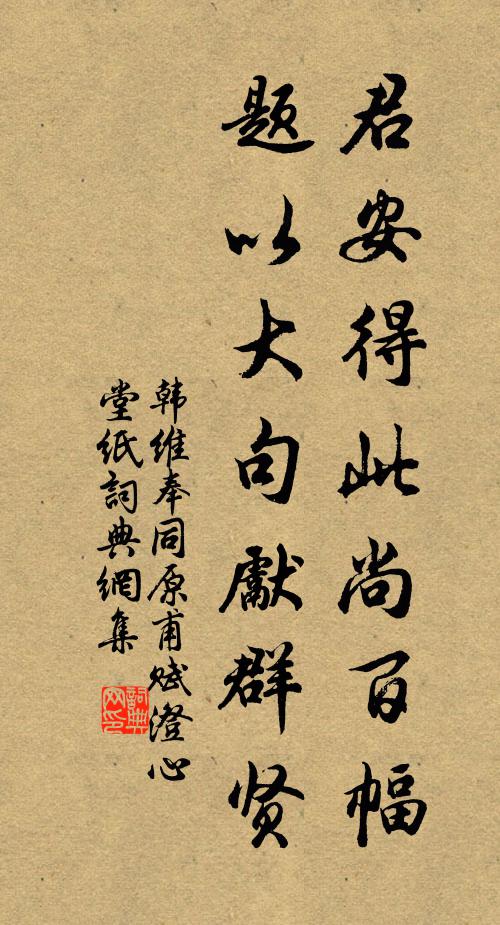 君安得此尚百幅
题以大句献群贤
韩维奉同原甫赋澄心
堂纸词典網集
詞典网印